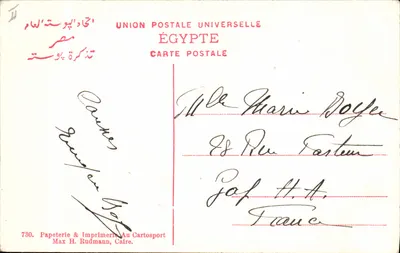 اتحاد البوستة العام
مصر
تذكرة بوستة
UNION POSTALE UNIVERSELLE
ÉGYPTE
CARTE POSTALE
Mlle Marie
28 Rue Pasteur
Gap H. A.
France
730. Papeterie & Imprimerie Au Cartosport
Max H. Rudmann, Caire.